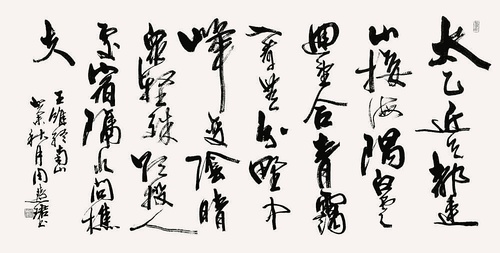 太乙近天都連
山接海隅白雲
迴望合青靄
入看無分野中
峰變陰晴
衆壑殊欲投人
處宿隔水問樵
夫
王維終南山
秋月周慧珺書